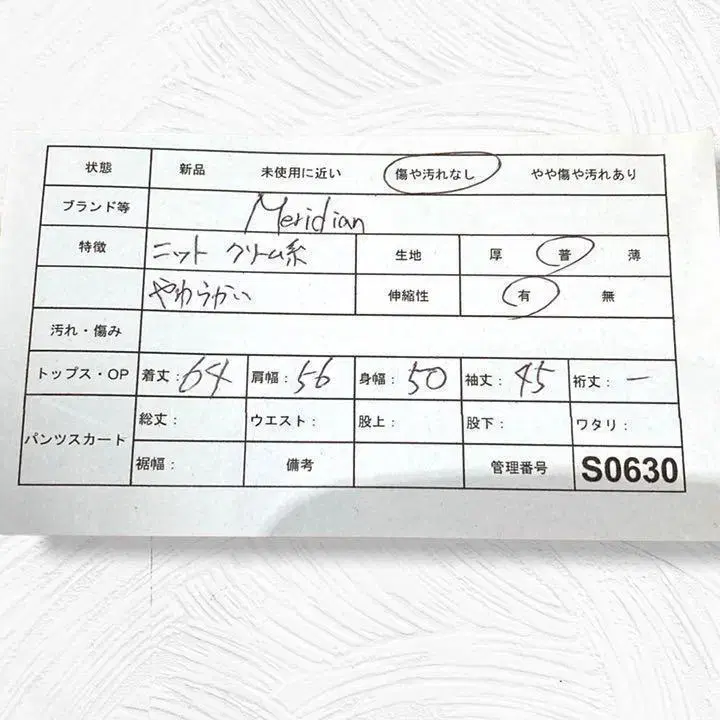 状態 新品 未使用に近い 傷や汚れなし やや傷や汚れあり
ブランド等 Meridian
特徴 ニット クリーム系 生地 厚 普 薄
やわらかい 伸縮性 有 無
汚れ・傷み
トップス・OP 着丈：64 肩幅：56 身幅：50 袖丈：45 裄丈：ー
パンツスカート 総丈： ウエスト： 股上： 股下： ワタリ：
裾幅： 備考 管理番号 S0630